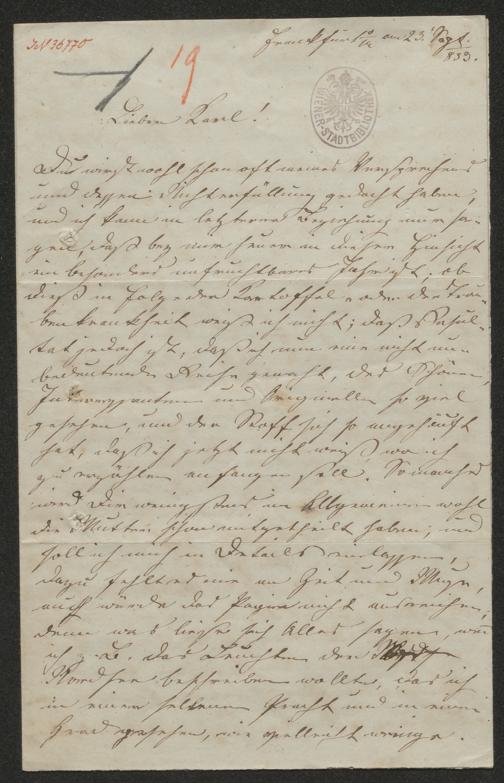 JN 36770
19
Frankfurt a/M am 23. Sept.
853.
WIENER-STADTBIBLIOTHEK
Lieber Karl!
Du wirst wohl schon oft meines Versprechens
und dessen Nichterfüllung gedacht haben,
und ich kann in letzterer Beziehung nur sa-
gen, daß bey mir heuer in dieser Hinsicht
ein besonders unfruchtbares Jahr ist. ob
dieß in Folge der Kartoffel- oder der Trau-
benkrankheit weiß ich nicht; das Resul-
tat jedoch ist, daß ich nun eine nicht un-
bedeutende Reise gemacht, des Schönen,
Interessanten und Originellen so viel
gesehen, und der Stoff sich so angehäuft
hat, daß ich jetzt nicht weiß, wo ich
zu erzählen anfangen soll. So manches
wird Dir wenigstens im Allgemeinen wohl
die Mutter schon mitgetheilt haben; und
soll ich mich in Details einlassen,
dazu fehlt es mir an Zeit und Muße,
auch würde das Papier nicht ausreichen,
denn was ließe sich Alles sagen, wenn
ich z. B. das Leuchten der
Nordsee beschreiben wollte, das ich
in einer seltenen Pracht und in einem
Grad gesehen, wie vielleicht wenige.